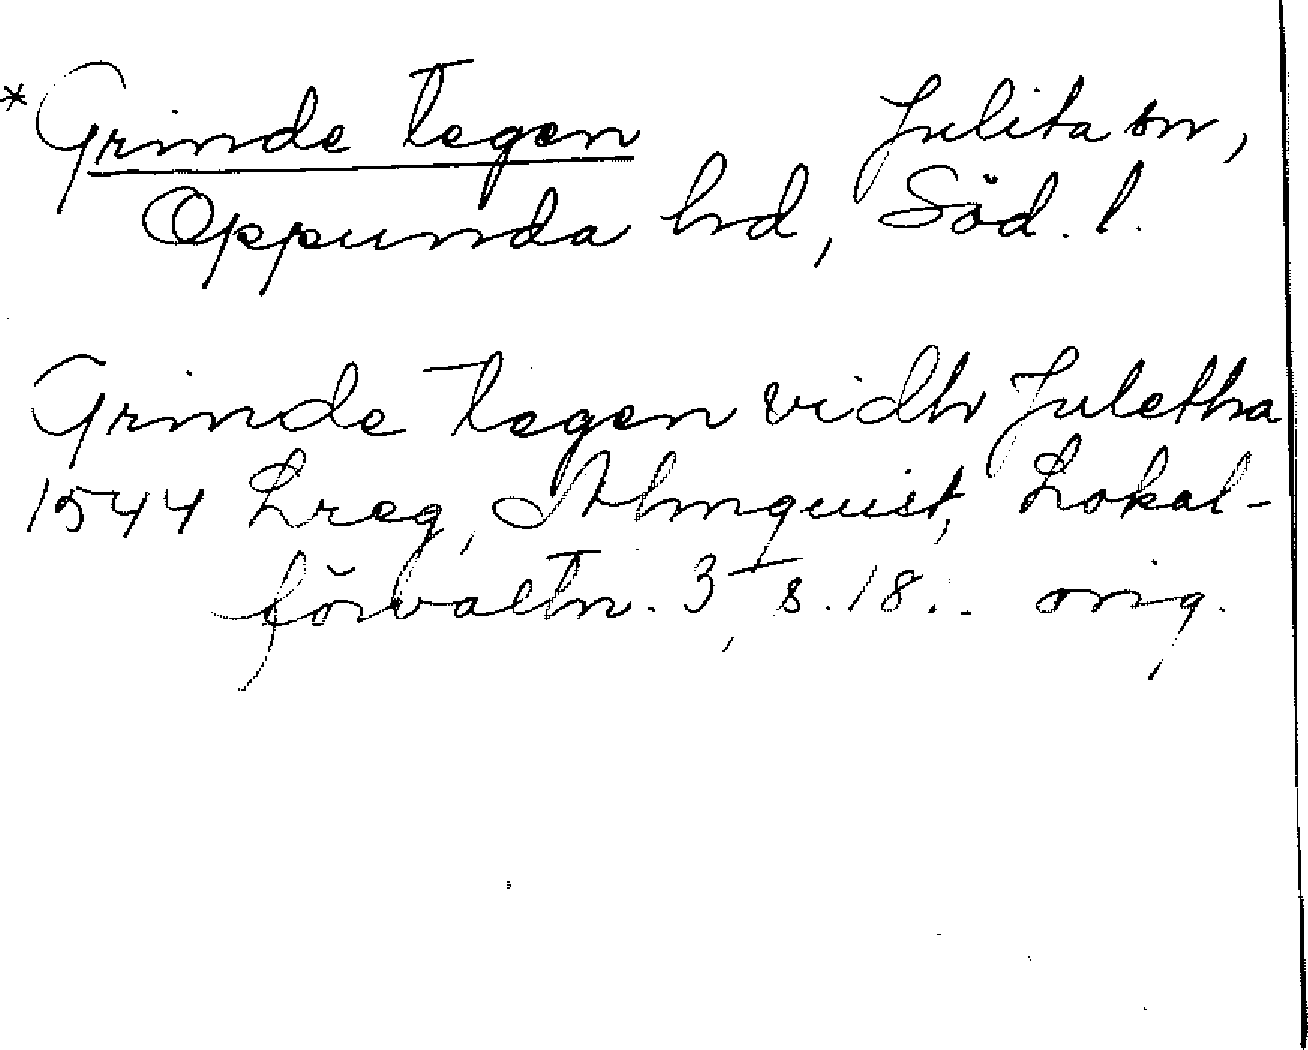 * Grinde Tegen Julita sn,
Oppunda hd, Söd. l.
Grinde Tegen vidh Juletha
1544 Lreg, Almquist, Lokal-
förvaltn. 3, s. 18. orig.